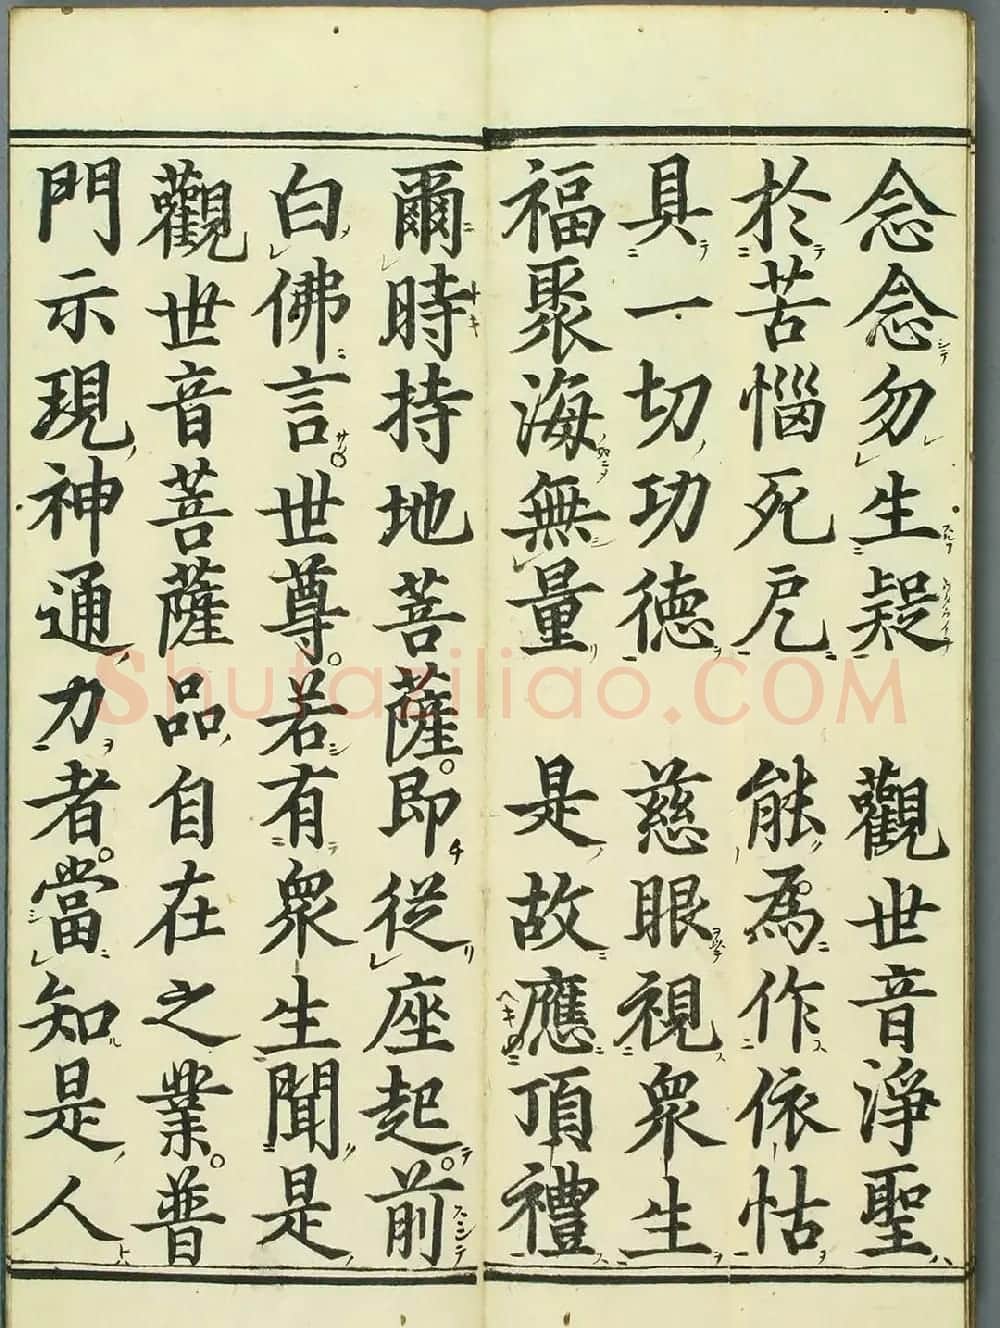 念念勿生疑 觀世音淨聖
於苦惱死厄 能為作依怙
具一切功德 慈眼視眾生
福聚海無量 是故應頂禮
爾時持地菩薩即從座起前
白佛言世尊若有眾生聞是
觀世音菩薩品自在之業普
門示現神通力者當知是人
Shufaziliao.COM